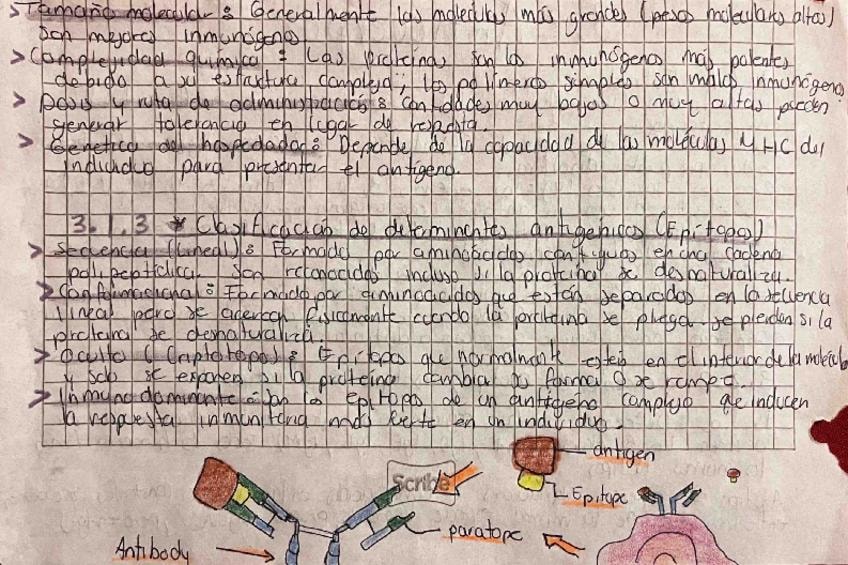 > Tamaño molecular : Generalmente las moléculas más grandes (pesos moleculares altos)
son mejores inmunógenos.
> Complejidad química : Las proteínas son los inmunógenos más potentes
debido a su estructura compleja; los polímeros simples son malos inmunógenos
> Dosis y ruta de administración : Cantidades muy bajas o muy altas pueden
generar tolerancia en lugar de respuesta.
> Genética del hospedador : Depende de la capacidad de las moléculas MHC del
individuo para presentar el antígeno.
3.1.3 * Clasificación de determinantes antigénicos (Epítopos)
> Secuencia (lineal) : Formado por aminoácidos contiguos en una cadena
polipeptídica. Son reconocidos incluso si la proteína se desnaturaliza.
> Conformacional : Formado por aminoácidos que están separados en la secuencia
lineal pero se acercan físicamente cuando la proteína se pliega. se pierden si la
proteína se desnaturaliza.
> Oculto (Criptotopo) : Epítopos que normalmente están en el interior de la molécula
y solo se exponen si la proteína cambia su forma o se rompe.
> Inmunodominante : Son los epítopos de un antígeno complejo que inducen
la respuesta inmunitaria más fuerte en un individuo.
antigen
Scribe
Epitope
paratope
Antibody